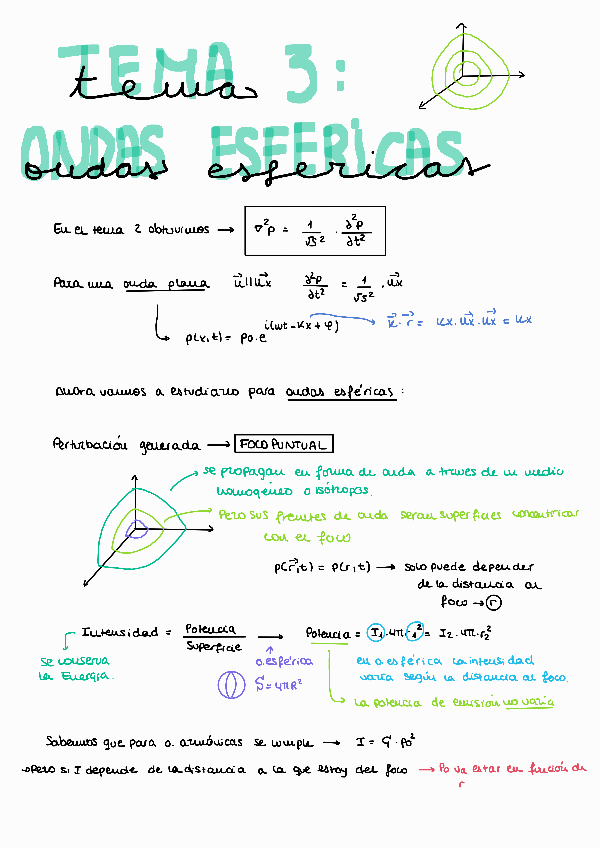 TEMA 3:
tema
ONDAS ESFERICAS
ondas esfericas
En el tema 2 obtuvimos → ∇²p = 1/vs² · ∂²p/∂t²
Para una onda plana u⃗ || u⃗x ∂²p/∂t² = 1/vs² · u⃗x
p(x,t) = po·e^i(wt-kx+φ) → k⃗·r⃗ = kx·u⃗x·u⃗x = kx
Ahora vamos a estudiarlo para ondas esféricas:
Perturbación generada → FOCO PUNTUAL
se propagan en forma de onda a traves de un medio
homogéneo o isótropos.
Pero sus frentes de onda seran superficies concentricas
con el foco
p(r⃗,t) = p(r,t) → solo puede depender
de la distancia al
foco → r
Intensidad = Potencia/Superficie → Potencia = I1·4π·r1² = I2·4π·r2²
se conserva
la Energía.
o.esférica
S = 4πR²
en o esférica la intensidad
varía según la distancia al foco.
la potencia de emisión no varía
Sabemos que para o. armónicas se cumple → I = G·po²
→ pero si I depende de la distancia a la que estoy del foco → Po va estar en función de
r